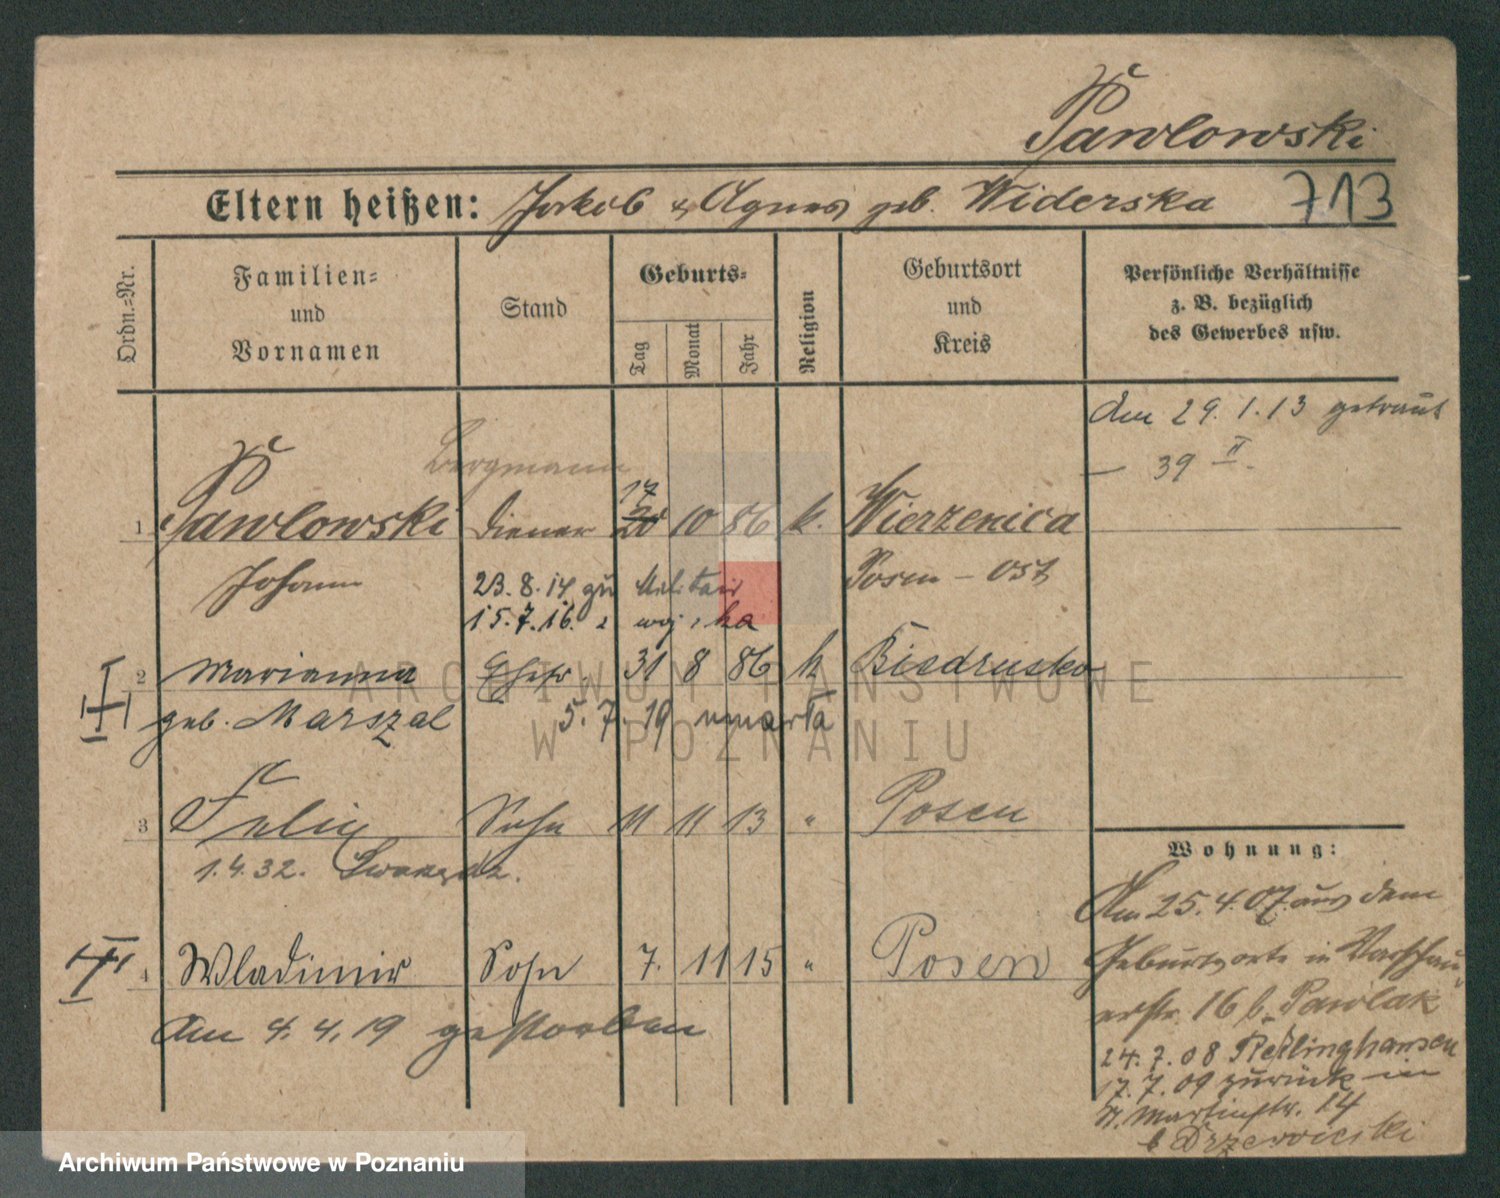 Pawlowski
Eltern heißen: Jakob & Agnes geb. Widerska 713
Ordn.=Nr.
Familien=
und
Vornamen
Stand
Geburts=
Tag
Monat
Jahr
Religion
Geburtsort
und
Kreis
Persönliche Verhältnisse
z. B. bezüglich
des Gewerbes usw.
Am 29. 1. 13 getraut
— 39 II.
Bergmann
17
1 Pawlowski Diener 20 10 86 k. Wierzenica
Johann Posen - Ost
23. 8. 14 zu Militair
15. 7. 16.
2 Marianna Ehefr. 31 8 86 k Biedrusko
geb. Marszal 5. 7. 19 umarła
3 Felix Sohn 11 11 13 " Posen
1. 4. 32.
4 Wladimir Sohn 7. 11 15 " Posen
Am 4. 4. 19 gestorben
Wohnung:
Am 25. 4. 07 aus dem
Geburtsorte in Warschau
erstr. 16 b. Pawlak
24. 7. 08 Recklinghausen
17. 7. 09 zurück in
St. Martinstr. 14
b Drzewiecki
ARCHIWUM PAŃSTWOWE
W POZNANIU
Archiwum Państwowe w Poznaniu